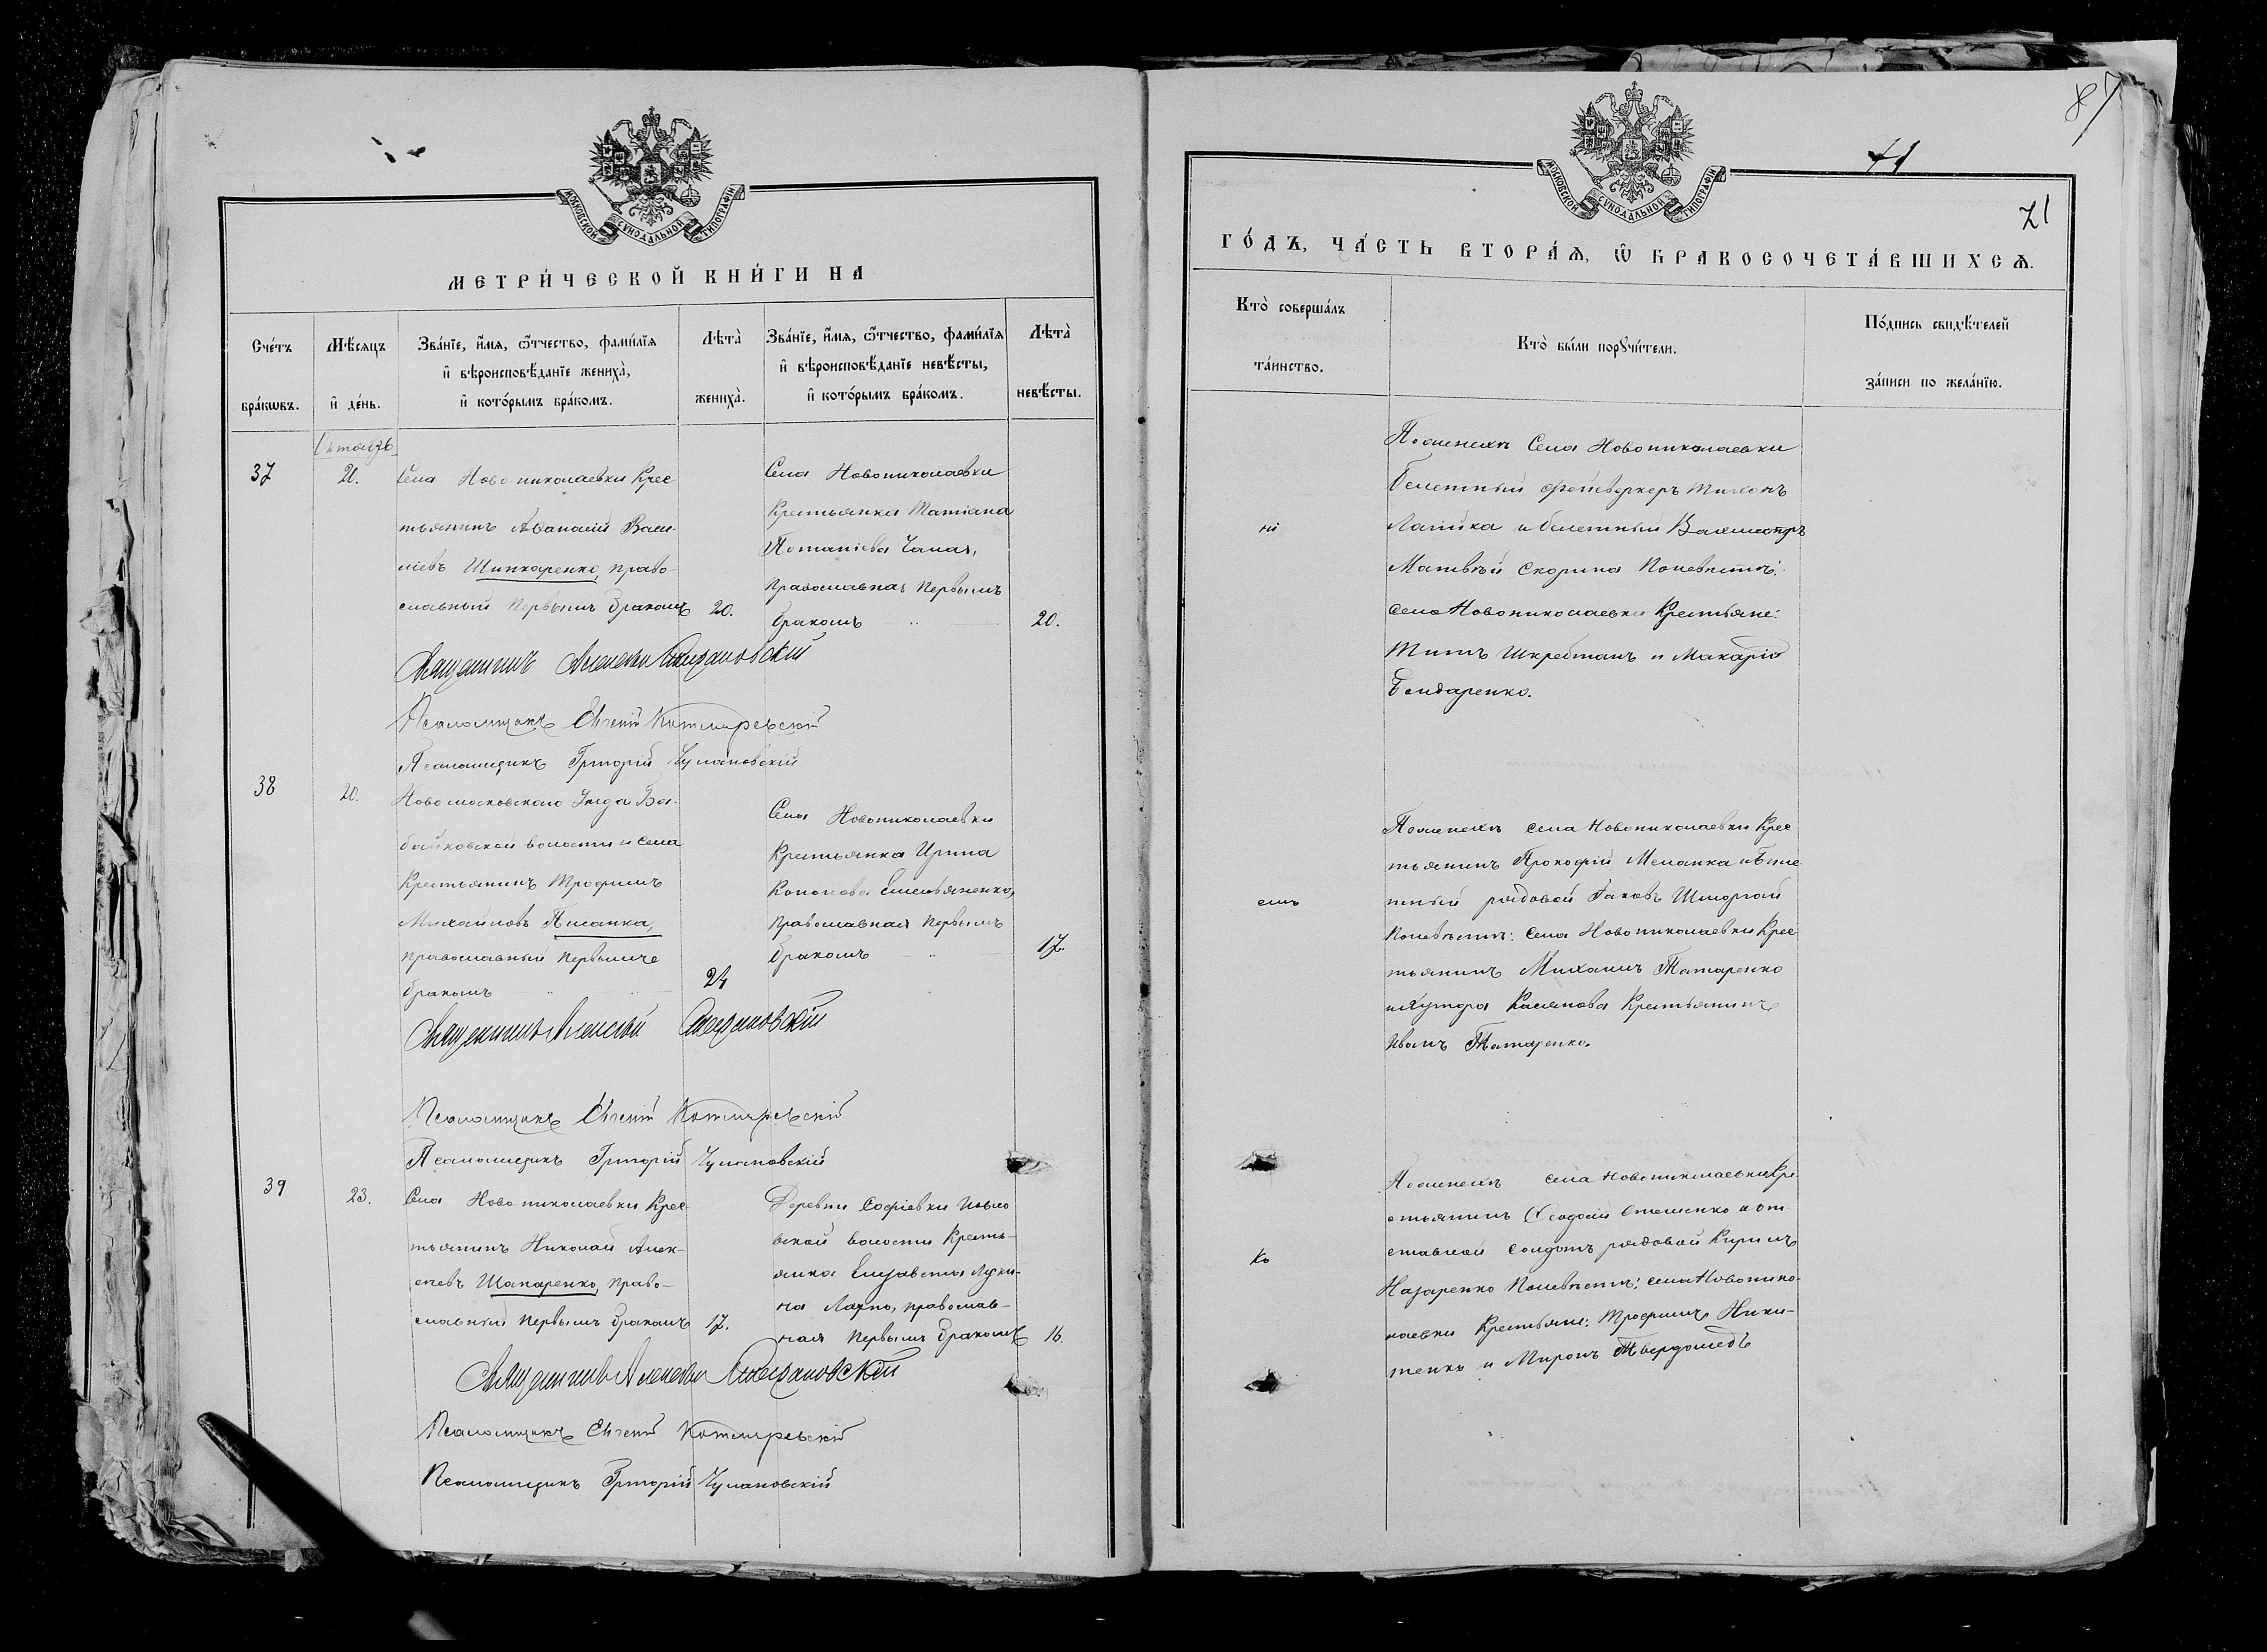 МОСКОВСКОЙ СѴНОДАЛЬНОЙ ТИПОГРАФІИ
МЕТРИ́ЧЕСКОЙ КНИ́ГИ НА
Сче́тъ бра́кѡвъ.
Мѣ́сяцъ и҆ де́нь.
Зва́нїе, и҆́мя, ѻ҆́тчество, фами́лїя и҆ вѣроисповѣ́данїе жениха̀, и҆ кото́рымъ бра́комъ.
Лѣта̀ жениха̀.
Зва́нїе, и҆́мя, ѻ҆́тчество, фами́лїя и҆ вѣроисповѣ́данїе невѣ́сты, и҆ кото́рымъ бра́комъ.
Лѣта̀ невѣ́сты.
Октябрь
37
20.
Села Ново-николаевки Крес
тьянинъ Аѳанасій Васи-
ліевъ Шинкаренко, право-
славный первымъ бракомъ
20.
Села Новониколаевки
Крестьянка Татіана
Потапіева
православная первымъ
бракомъ
20.
Священникъ Алексѣй
Псаломщикъ Евгеній Котляревскій
Псаломщикъ Григорій Чулановскій
38
20.
Новомосковскаго Уѣзда Ба-
байковской волости и села
Крестьянинъ Трофимъ
Михайловъ Писанка,
православный первымъ
бракомъ
24
Села Новониколаевки
Крестьянка Ирина
Кононова Емельяненко,
православная первымъ
бракомъ
17.
Священникъ Алексѣй
Псаломщикъ Евгеній Котляревскій
Псаломщикъ Григорій Чулановскій
39
23.
Села Ново николаевки Крес
тьянинъ Николай Алек-
сѣевъ Шапаренко, право-
славный первымъ бракомъ
17.
Деревни Софіевки
вской волости Кресть-
янка Елизавета Луки-
на православ-
ная первымъ бракомъ
16.
Священникъ Алексѣй
Псаломщикъ Евгеній Котляревскій
Псаломщикъ Григорій Чулановскій
87
71
71
МОСКОВСКОЙ СѴНОДАЛЬНОЙ ТИПОГРАФІИ
ГО́ДЪ, ЧА́СТЬ ВТОРА́Ѧ, Ѡ҆ БРАКОСОЧЕТА́ВШИХСѦ.
Кто̀ соверша́лъ та́инство.
Кто̀ бы́ли порꙋчи́тели.
По́дпись свидѣ́телей за́писи по жела́нїю.
ні
По женихѣ Села Новониколаевки
билетный фейерверкеръ Тихонъ
и билетный Вахмистръ
Матвѣй Скорина По невѣстѣ:
села Новониколаевки Крестьяне:
Титъ Шкребтанъ и Макарій
Бондаренко.
емъ
По женихѣ села Новониколаевки Крес
тьянинъ Прокофій и биле
тный рядовой Іаковъ
По невѣстѣ: села Новониколаевки Крес
тьянинъ Михаилъ Татаренко
и хутора Касянова Крестьянинъ
Иванъ Татаренко.
ко
По женихѣ села Новониколаевки Кре-
стьянинъ Ѳеодосій и от-
ставной солдатъ рядовой Кирилъ
Назаренко По невѣстѣ: села Новонико-
лаевки Крестьяне: Трофимъ Ники-
тенко и Миронъ Твердохлѣбъ